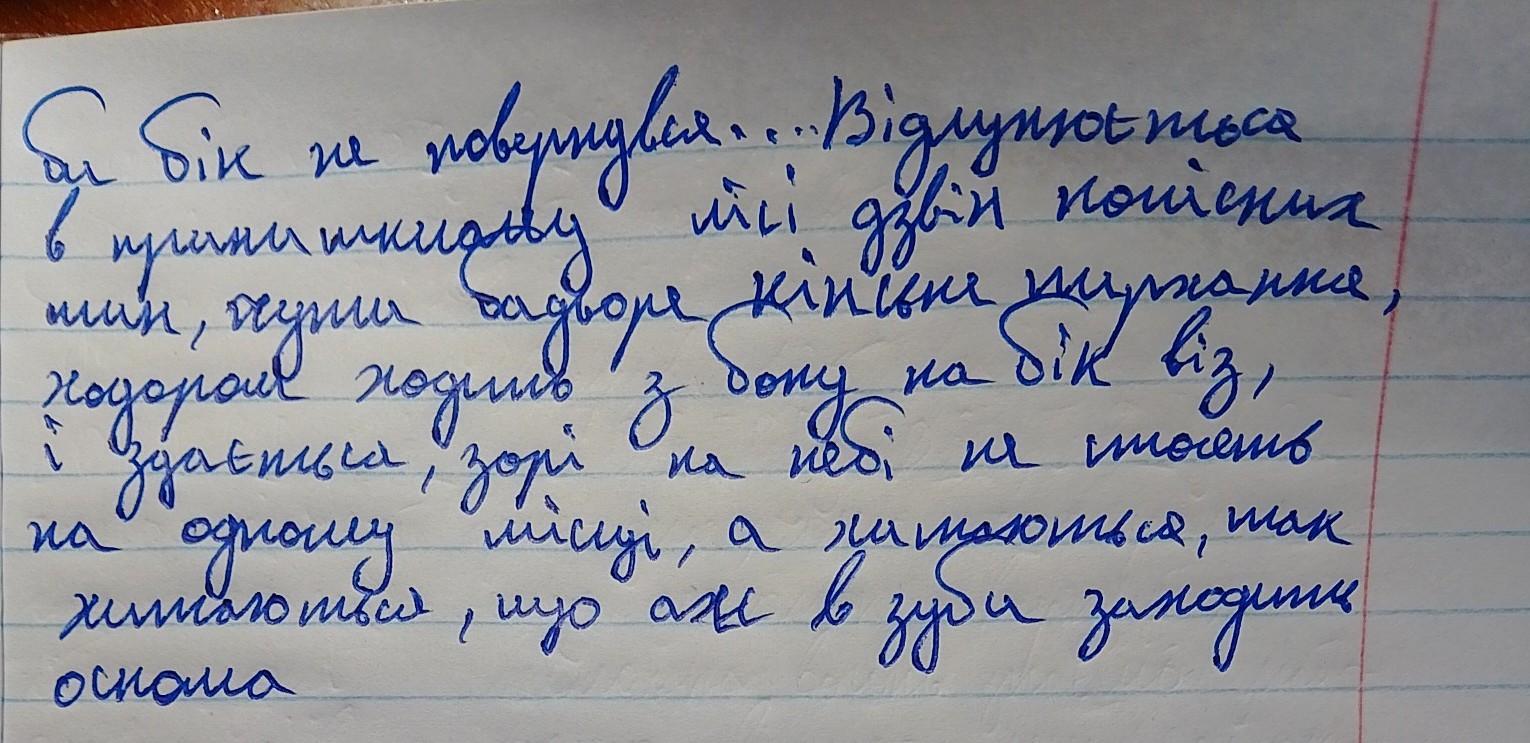 би бік не повернувся....Відлунюється
в принишклому лісі дзвін колісних
шин, чути бадьоре кінське іржання,
ходором ходить з боку на бік віз,
і здається, зорі на небі не стоять
на одному місці, а хитаються, так
хитаються, що аж в зуби заходить
оскома